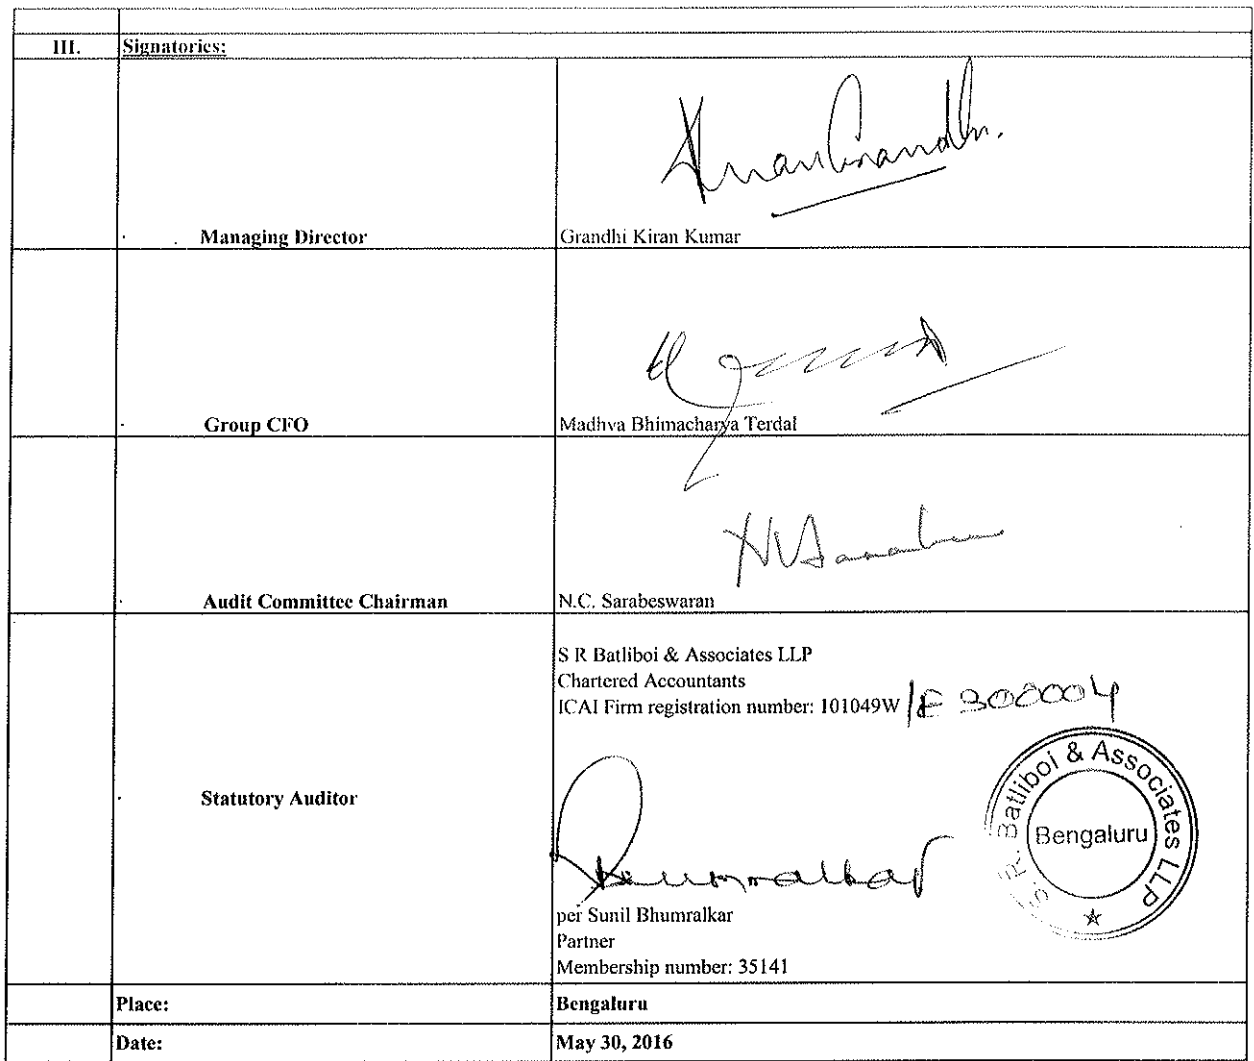 III. Signatories:
Managing Director
Grandhi Kiran Kumar
Group CFO
Madhva Bhimacharya Terdal
Audit Committee Chairman
N.C. Sarabeswaran
S R Batliboi & Associates LLP
Chartered Accountants
ICAI Firm registration number: 101049W /E 300004
Statutory Auditor
S. R. Batliboi & Associates LLP
Bengaluru
per Sunil Bhumralkar
Partner
Membership number: 35141
Place: Bengaluru
Date: May 30, 2016